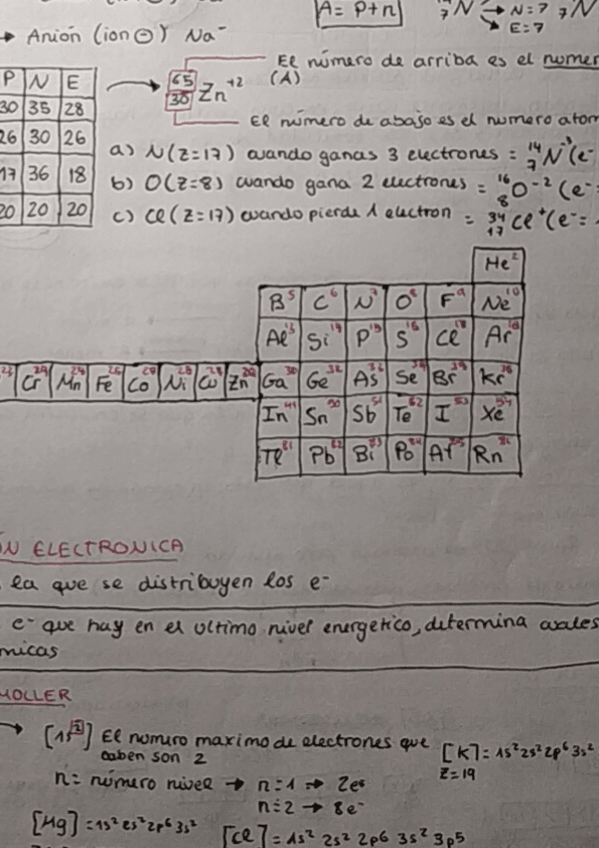 A = P+n
N → N=7 7 N
→ Anión (ion ⊖) Na⁻
→ E=7
P N E
30 35 28
26 30 26
17 36 18
20 20 20
→ 65 30 Zn⁺²
El número de arriba es el numer
(A)
El número de abaso es el numero atom
a) N(Z=17) cuando ganas 3 electrones = ¹⁴₇N⁻³(e⁻
b) O(Z=8) cuando gana 2 electrones = ¹⁶₈O⁻²(e⁻
c) Cl(Z=17) cuando pierde 1 electron = ³⁴₁₇Cl⁺(e⁻=
He²
B⁵ C⁶ N⁷ O⁸ F⁹ Ne¹⁰
Al¹³ Si P S¹⁶ Cl Ar
Cr Mn Fe Co Ni Cu Zn Ga Ge³² As Se Br Kr
In Sn Sb⁵¹ Te I⁵³ Xe⁵⁴
Tl⁸¹ Pb⁸² Bi⁸³ Po⁸⁴ At⁸⁵ Rn
ÓN ELECTRONICA
la que se distribuyen los e⁻
e⁻ que hay en el ultimo nivel energetico, determina
micas
MOLLER
→ [1s²] El numero maximo de electrones que
caben son 2
[K]=1s²2s²2p⁶3s²
Z=19
n= número nivel → n=1 → 2e⁻
n=2 → 8e⁻
[Mg]=1s²2s²2p⁶3s²
[Cl]=1s² 2s² 2p6 3s² 3p5